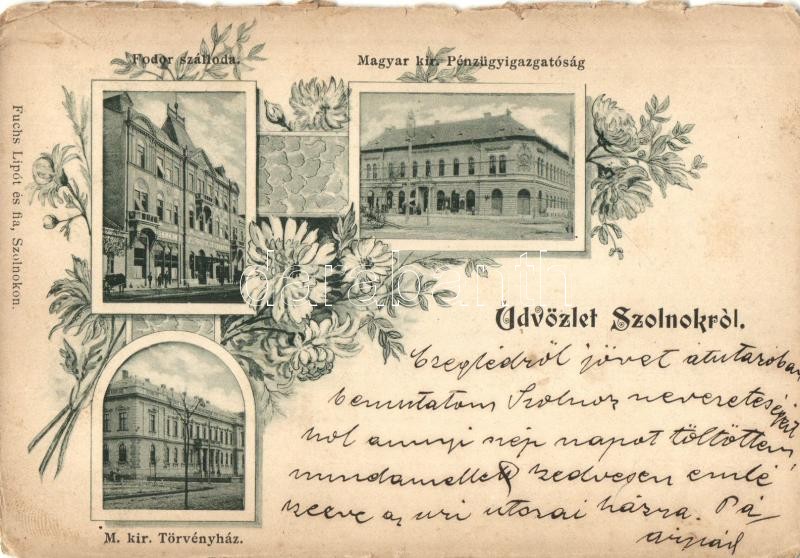 Fodor szálloda.
Magyar kir. Pénzügyigazgatóság
Fuchs Lipót és fia, Szolnokon.
darabanth
Üdvözlet Szolnokról.
Czeglédről jövet átutazóban
bemutatom Szolnok nevezetességeit
hol annyi nép napot töltöttem
mindamellett kedvesen emlé
kezve az uri utczai házra. Pá
Árpád
M. kir. Törvényház.